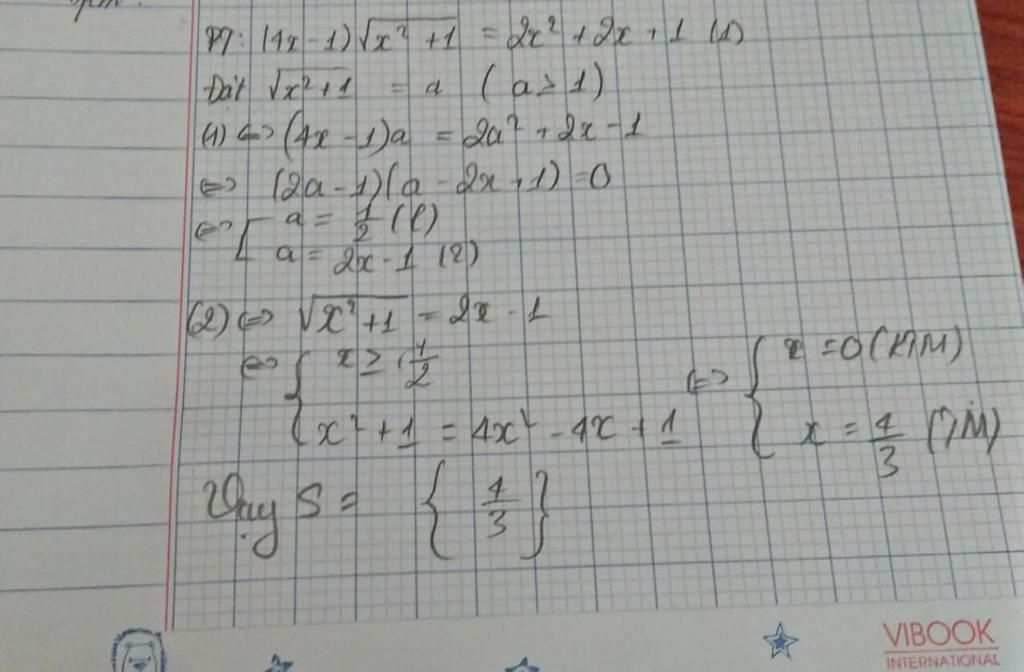 PT: (4x-1)√(x²+1) = 2x²+2x+1 (1)
Đặt √(x²+1) = a (a ≥ 1)
(1) ⇔ (4x-1)a = 2a²+2x-1
⇔ (2a-1)(a-2x+1)=0
⇔ [ a = 1/2 (l)
a = 2x-1 (2)
(2) ⇔ √(x²+1) = 2x-1
⇔ { x ≥ 1/2
x²+1 = 4x²-4x+1
⇔ { x = 0 (KTM)
x = 4/3 (TM)
Vậy S = { 4/3 }
VIBOOK
INTERNATIONAL